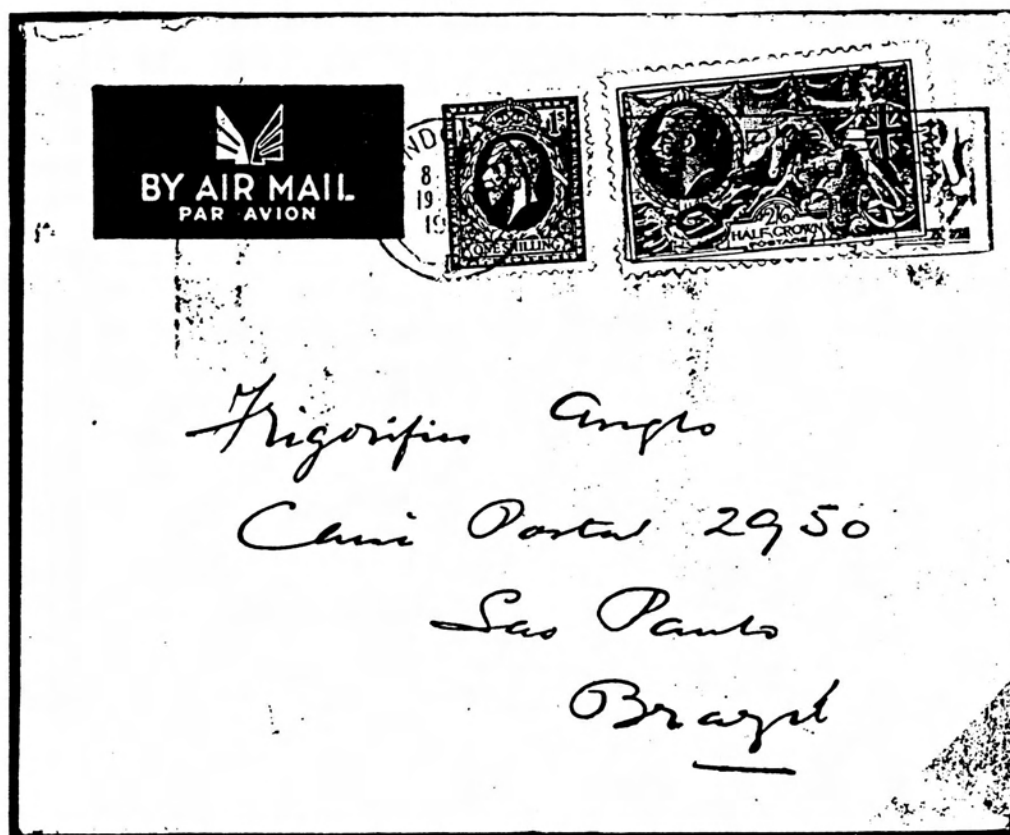 BY AIR MAIL
PAR AVION
ND
8
19
19
1s 1s
ONE SHILLING
2/6
HALF CROWN
POSTAGE
Frigorifico Anglo
Postal 2950
Sao Paulo
Brazil